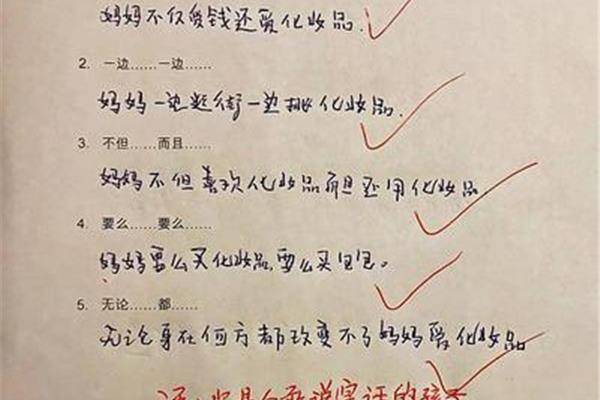 妈妈不仅爱钱还爱化妆品.
2. 一边……一边……
妈妈一边逛街一边挑化妆品.
3. 不但……而且……
妈妈不但喜欢化妆品而且还用化妆品
4. 要么……要么……
妈妈要么买化妆品,要么买包包。
5. 无论……都……
无论身在何方都改变不了妈妈爱化妆品
是个敢说实话的孩子